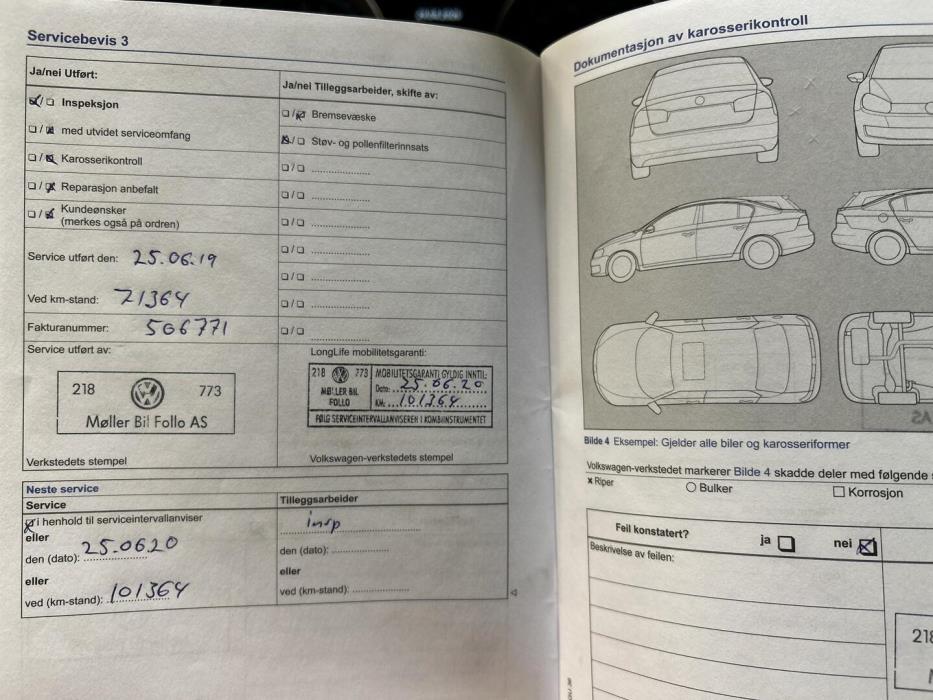 Servicebevis 3
Ja/nei Utført:
Inspeksjon
med utvidet serviceomfang
Karosserikontroll
Reparasjon anbefalt
Kundeønsker
(merkes også på ordren)
Service utført den: 25.06.19
Ved km-stand: 71364
Fakturanummer: 566771
Service utført av:
218 773
Møller Bil Follo AS
Verkstedets stempel
Ja/nei Tilleggsarbeider, skifte av:
Bremsevæske
Støv- og pollenfilterinnsats
LongLife mobilitetsgaranti:
218 773 MOBILITETSGARANTI GYLDIG INNTIL:
MØLLER BIL Dato: 25.06.20
FOLLO KM. 101364
FØLG SERVICEINTERVALLANVISEREN I KOMBIINSTRUMENTET
Volkswagen-verkstedets stempel
Neste service
Service
i henhold til serviceintervallanviser
eller
den (dato): 25.0620
eller
ved (km-stand): 101364
Tilleggsarbeider
insp
den (dato):
eller
ved (km-stand):
Dokumentasjon av karosserikontroll
Bilde 4 Eksempel: Gjelder alle biler og karosseriformer
Volkswagen-verkstedet markerer Bilde 4 skadde deler med følgende
x Riper Bulker Korrosjon
Feil konstatert? ja nei
Beskrivelse av feilen:
218